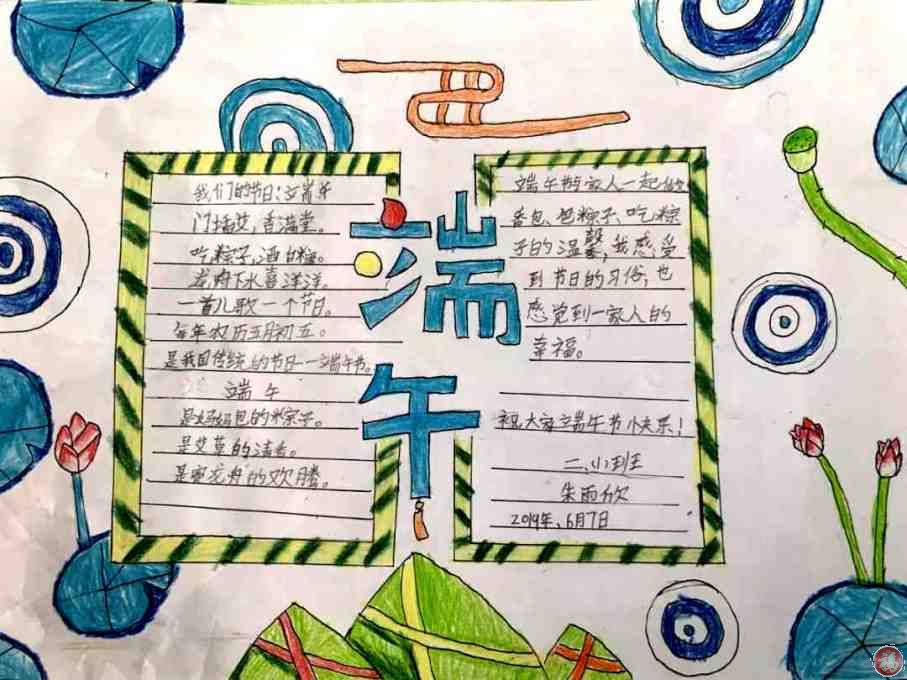 我们的节日:端午
门插艾,香满堂。
吃粽子,洒白糖。
龙舟下水喜洋洋。
一首儿歌一个节日。
每年农历五月初五。
是我国传统的节日——端午节。
端午
是妈妈包的粽子。
是艾草的清香。
是赛龙舟的欢腾。
端午
端午节与家人一起做
香包、包粽子、吃粽
子的温馨,我感受
到节日的习俗,也
感觉到一家人的
幸福。
祝大家端午节快乐!
二、小班
朱雨欣
2019年、6月7日